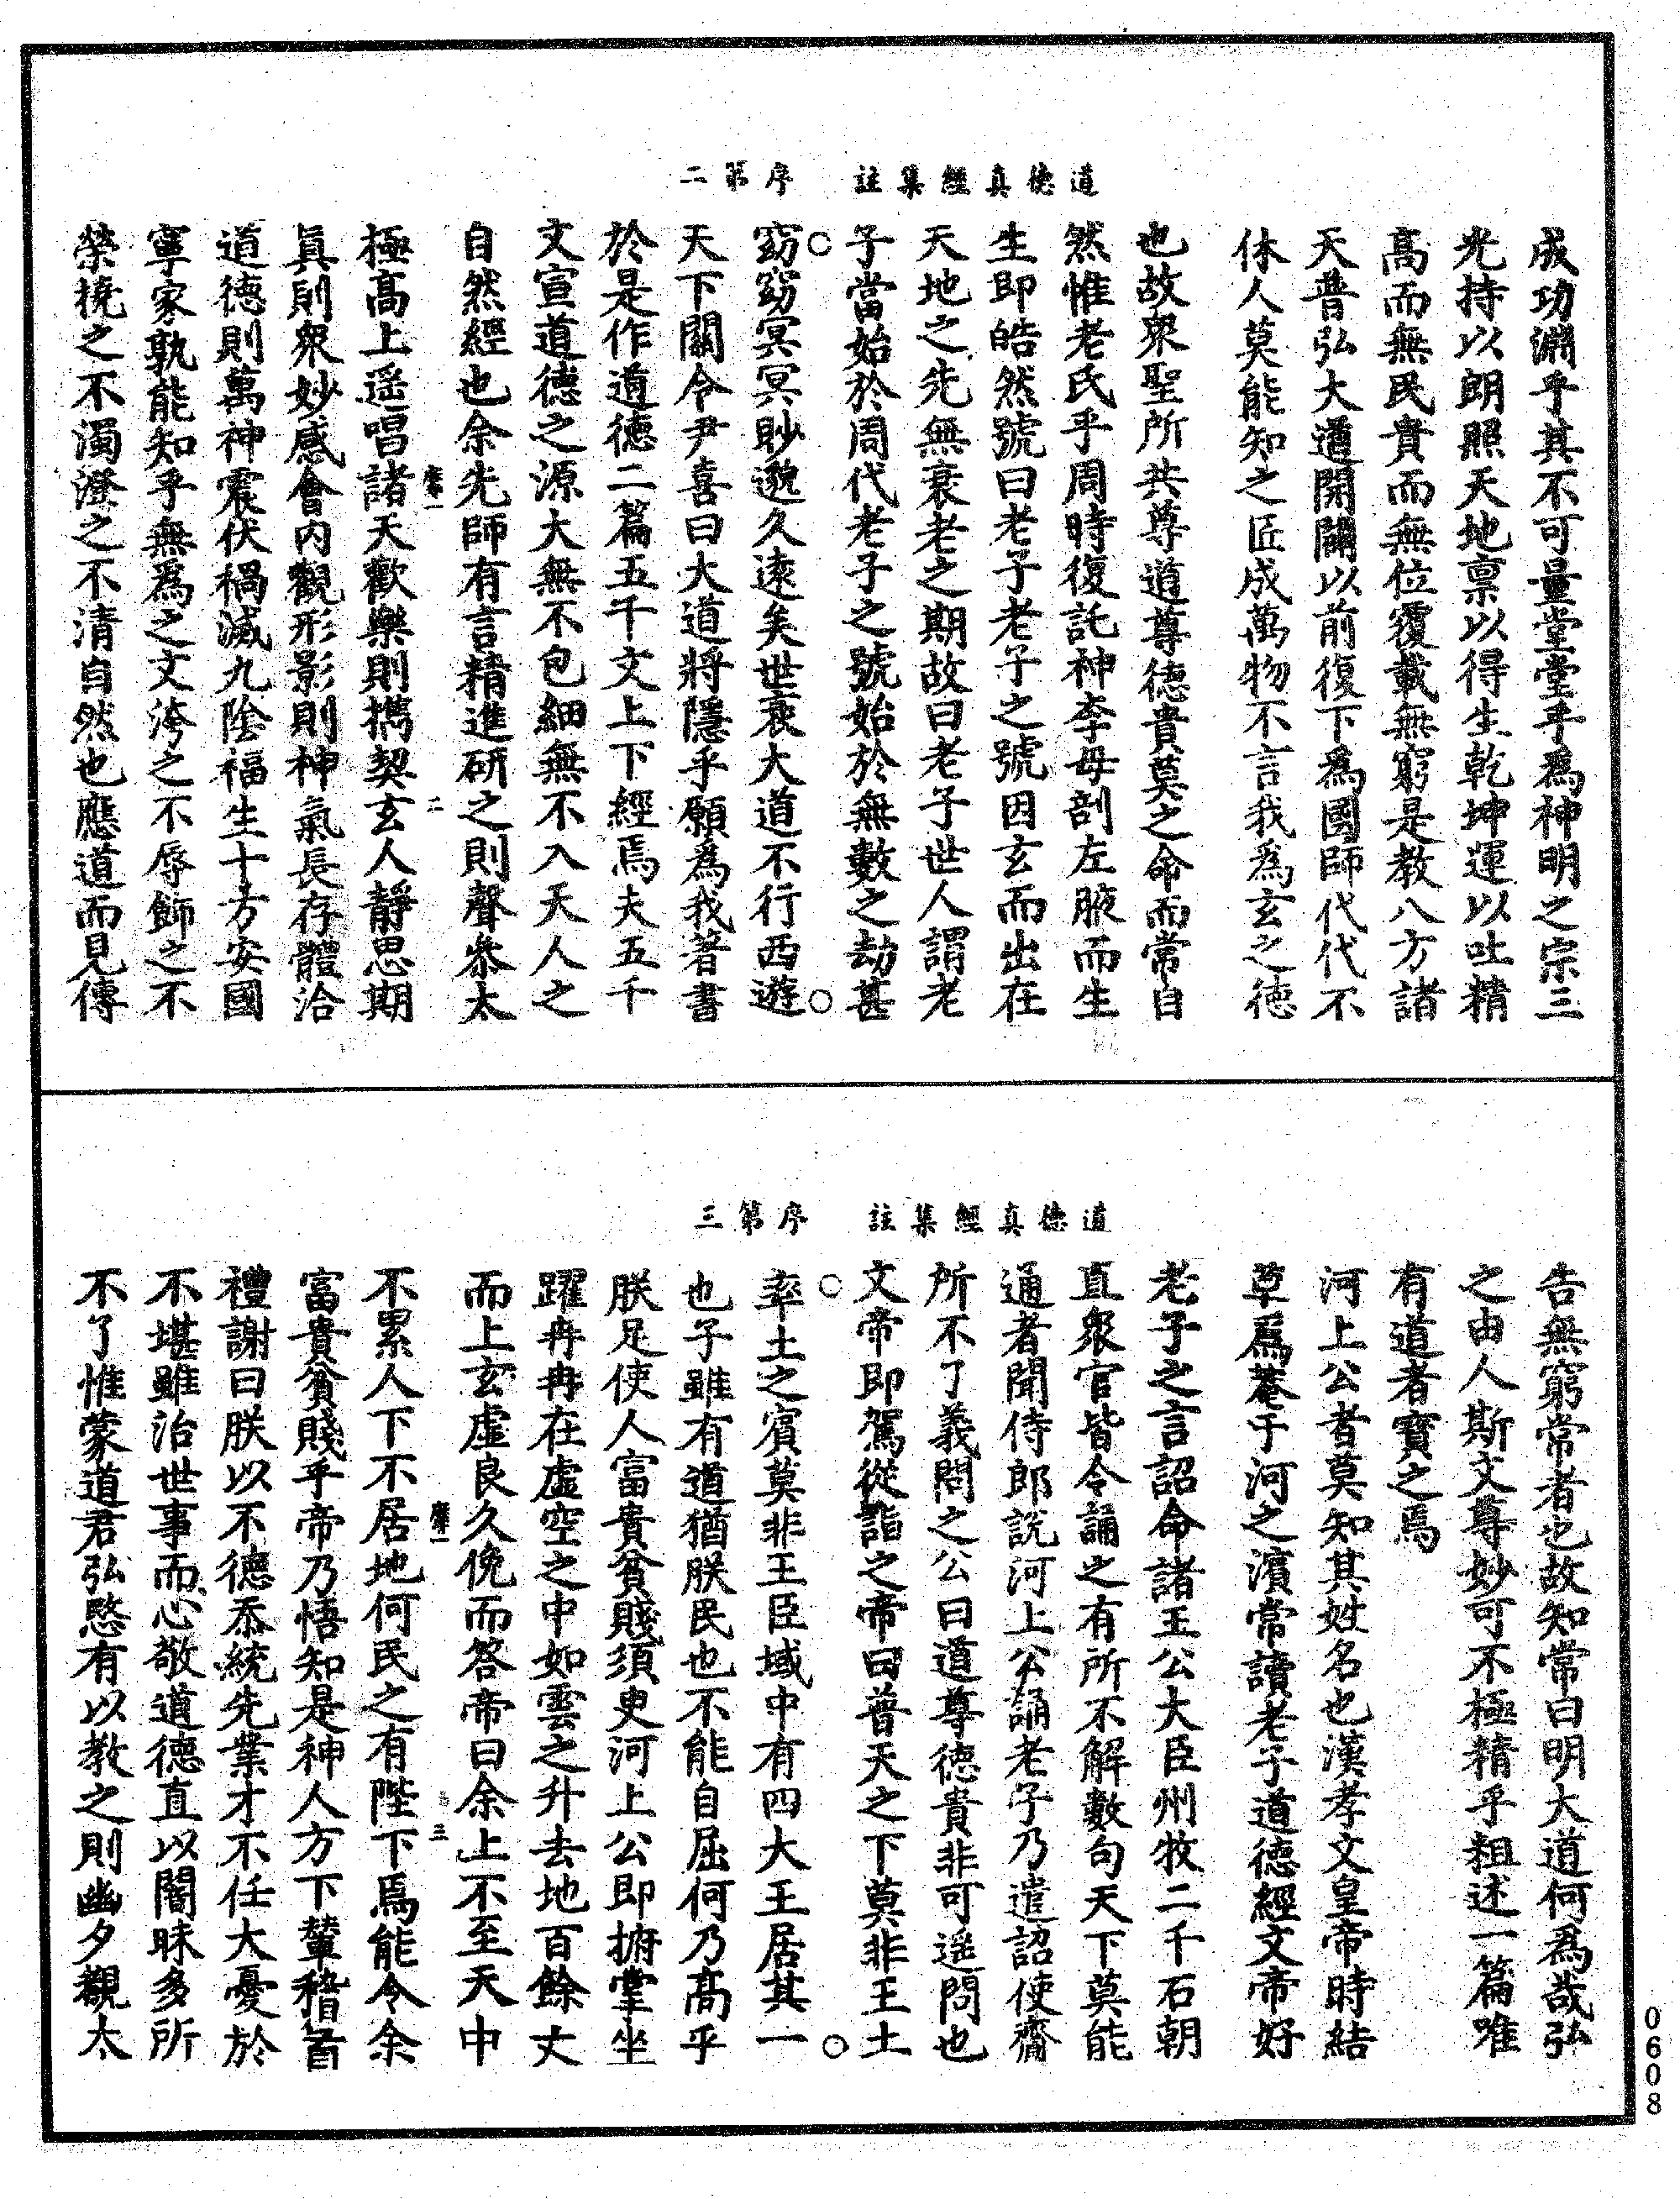 道德真經集註　序　第二
成功淵乎其不可量堂堂乎為神明之宗三
光持以朗照天地稟以得生乾坤運以吐精
高而無民貴而無位覆載無窮是教八方諸
天普弘大道開闢以前復下為國師代代不
休人莫能知之匠成萬物不言我為玄之德
也故眾聖所共尊道尊德貴莫之命而常自
然惟老氏乎周時復託神李母剖左腋而生
生即皓然號曰老子老子之號因玄而出在
天地之先無衰老之期故曰老子世人謂老
子當始於周代老子之號始於無數之劫甚
窈窈冥冥眇邈久遠矣世衰大道不行西遊
天下關令尹喜曰大道將隱乎願為我著書
於是作道德二篇五千文上下經焉夫五千
文宣道德之源大無不包細無不入天人之
自然經也余先師有言精進研之則聲參太
極高上遥唱諸天歡樂則攜契玄人靜思期
真則眾妙感會內觀形影則神氣長存體洽
道德則萬神震伏禍滅九陰福生十方安國
寧家孰能知乎無為之文洿之不辱飾之不
榮撓之不濁澄之不清自然也應道而見傳
二
道德真經集註　序　第三
告無窮常者也故知常曰明大道何為哉弘
之由人斯文尊妙可不極精乎粗述一篇唯
有道者寶之焉
河上公者莫知其姓名也漢孝文皇帝時結
草為菴于河之濱常讀老子道德經文帝好
老子之言詔命諸王公大臣州牧二千石朝
直眾官皆令誦之有所不解數句天下莫能
通者聞侍郎說河上公誦老子乃遣詔使齎
所不了義問之公曰道尊德貴非可遥問也
文帝即駕從詣之帝曰普天之下莫非王土
率土之賓莫非王臣域中有四大王居其一
也子雖有道猶朕民也不能自屈何乃高乎
朕足使人富貴貧賤須臾河上公即拊掌坐
躍冉冉在虛空之中如雲之升去地百餘丈
而上玄虛良久俛而答帝曰余上不至天中
不累人下不居地何民之有陛下焉能令余
富貴貧賤乎帝乃悟知是神人方下輦稽首
禮謝曰朕以不德忝統先業才不任大憂於
不堪雖治世事而心敬道德直以闇昧多所
不了惟蒙道君弘愍有以教之則幽夕覩太
三
0608